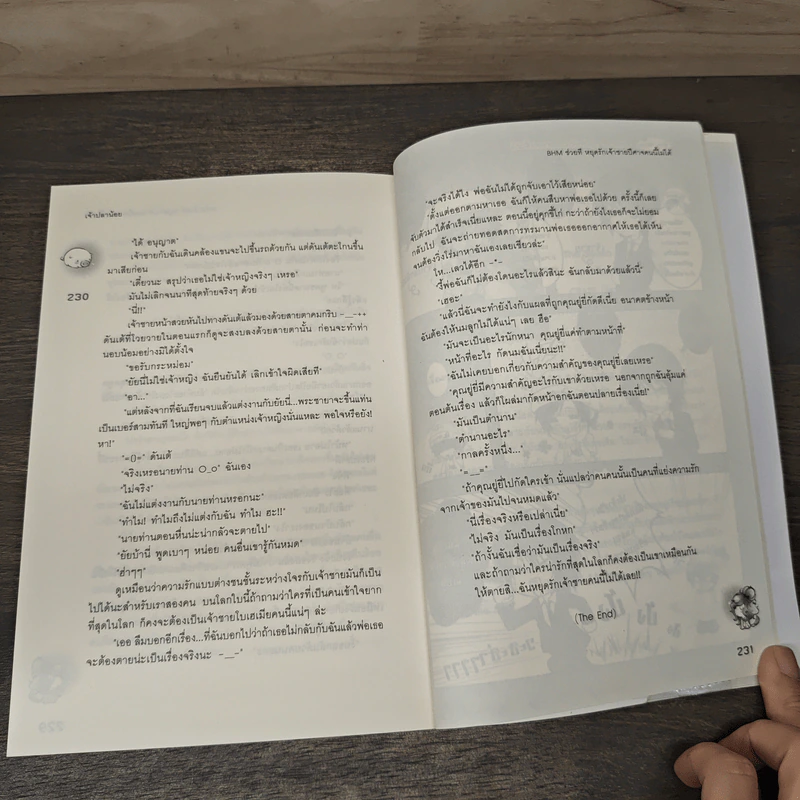 เจ้าปลาน้อย
230
"ได้ อนุญาต"
เจ้าชายกับฉันเดินคล้องแขนจะไปขึ้นรถด้วยกัน แต่ดันเต้ตะโกนขึ้น
มาเสียก่อน
"เดี๋ยวนะ สรุปว่าเธอไม่ใช่เจ้าหญิงจริงๆ เหรอ"
มันไม่เลิกจนนาทีสุดท้ายจริงๆ ด้วย
"นี่!!"
เจ้าชายหน้าสวยหันไปทางดันเต้แล้วมองด้วยสายตาคมกริบ -__-++
ดันเต้ที่โวยวายในตอนแรกก็ดูจะสงบลงด้วยสายตานั้น ก่อนจะทำท่า
นอบน้อมอย่างมิได้ตั้งใจ
"ขอรับกระหม่อม"
"ยัยนี่ไม่ใช่เจ้าหญิง ฉันยืนยันได้ เลิกเข้าใจผิดเสียที"
"อา..."
"แต่หลังจากที่ฉันเรียนจบแล้วแต่งงานกับยัยนี่...พระชายาจะขึ้นแท่น
เป็นเบอร์สามทันที ใหญ่พอๆ กับตำแหน่งเจ้าหญิงนั่นแหละ พอใจหรือยัง!
หา!"
"=()=" ดันเต้
"จริงเหรอนายท่าน O_o" ฉันเอง
"ไม่จริง"
"ฉันไม่แต่งงานกับนายท่านหรอกนะ"
"ทำไม! ทำไมถึงไม่แต่งกับฉัน ทำไม ฮะ!!"
"นายท่านตอนหื่นน่ะน่ากลัวจะตายไป"
"ยัยบ้านี่ พูดเบาๆ หน่อย คนอื่นเขารู้กันหมด"
"ฮ่าๆๆ"
ดูเหมือนว่าความรักแบบต่างชนชั้นระหว่างโจรกับเจ้าชายมันก็เป็น
ไปได้นะสำหรับเราสองคน บนโลกใบนี้ถ้าถามว่าใครที่เป็นคนเข้าใจยาก
ที่สุดในโลก ก็คงจะต้องเป็นเจ้าชายโบเฮเมียคนนี้แน่ๆ ล่ะ
"เออ ลืมบอกอีกเรื่อง...ที่ฉันบอกไปว่าถ้าเธอไม่กลับกับฉันแล้วพ่อเธอ
จะต้องตายน่ะเป็นเรื่องจริงนะ -__-"
BHM ช่วยที หยุดรักเจ้าชายปีศาจคนนี้ไม่ได้
"จะจริงได้ไง พ่อฉันไม่ได้ถูกจับเอาไว้เสียหน่อย"
"ตั้งแต่ออกตามหาเธอ ฉันก็ให้คนสืบหาพ่อเธอไปด้วย ครั้งนี้ก็เลย
จับตัวมาได้สำเร็จเนี่ยแหละ ตอนนี้อยู่คุกขี้ไก่ กะว่าถ้ายังไงเธอก็จะไม่ยอม
กลับไป ฉันจะถ่ายทอดสดการทรมานพ่อเธอออกอากาศให้เธอได้เห็น
จนต้องวิ่งโร่มาหาฉันเองเลยเชียวล่ะ"
โห...เลวได้อีก -*-
"งี้พ่อฉันก็ไม่ต้องโดนอะไรแล้วสินะ ฉันกลับมาด้วยแล้วนี่"
"เฮอะ"
"แล้วนี่ฉันจะทำยังไงกับแผลที่ถูกคุณยู่ยี่กัดดีเนี่ย อนาคตข้างหน้า
ฉันต้องให้นมลูกไม่ได้แน่ๆ เลย ฮือ"
"มันจะเป็นอะไรนักหนา คุณยู่ยี่แค่ทำตามหน้าที่"
"หน้าที่อะไร กัดนมฉันเนี่ยนะ!!"
"ฉันไม่เคยบอกเกี่ยวกับความสำคัญของคุณยู่ยี่เลยเหรอ"
"คุณยู่ยี่มีความสำคัญอะไรกับเขาด้วยเหรอ นอกจากถูกฉันอุ้มแค่
ตอนต้นเรื่อง แล้วก็โผล่มากัดหน้าอกฉันตอนปลายเรื่องเนี่ย!"
"มันเป็นตำนาน"
"ตำนานอะไร"
"กาลครั้งหนึ่ง..."
"=__="
"ถ้าคุณยู่ยี่ไปกัดใครเข้า นั่นแปลว่าคนคนนั้นเป็นคนที่แย่งความรัก
จากเจ้าของมันไปจนหมดแล้ว"
"นี่เรื่องจริงหรือเปล่าเนี่ย"
"ไม่จริง มันเป็นเรื่องโกหก"
"ถ้างั้นฉันเชื่อว่ามันเป็นเรื่องจริง"
และถ้าถามว่าใครน่ารักที่สุดในโลกก็คงต้องเป็นเขาเหมือนกัน
ให้ตายสิ...ฉันหยุดรักเจ้าชายคนนี้ไม่ได้เลย!!
(The End)
231